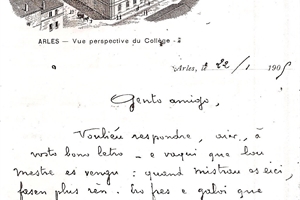 ARLES — Vue perspective du Collège
Arles, le 22/1 1905
Gento amigo,
Vouliéu respondre, aièr, à
vosto bono letro — e vaqui que lou
mestre es vengu : quand mistrau es eici,
fasèn plus rèn. Ero fres e galoi que